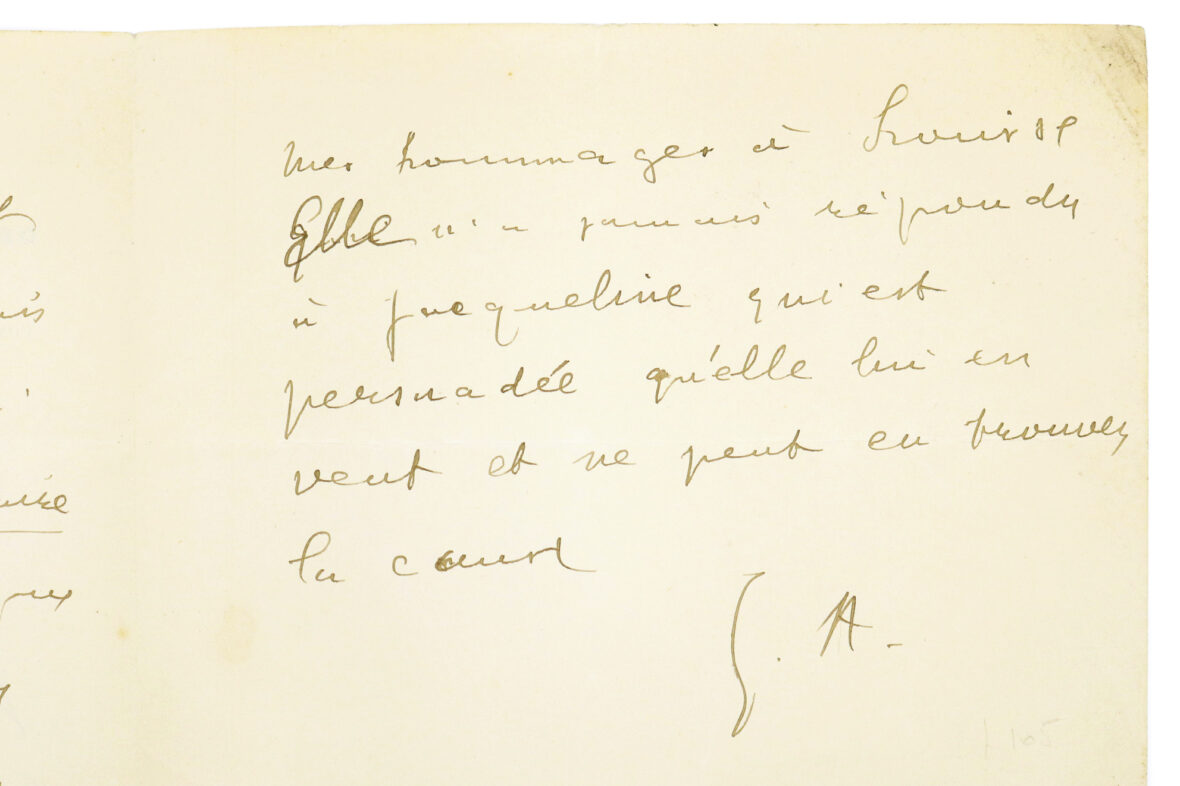 mes hommages à Louise
Elle n'a jamais répondu
à Jacqueline qui est
persuadée qu'elle lui en
veut et ne peut en trouver
la cause
G. A.